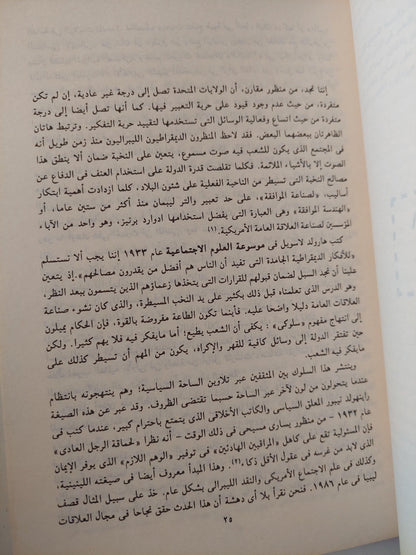 إننا نجد، من منظور مقارن، أن الولايات المتحدة تصل إلى درجة غير عادية، إن لم تكن
متفردة، من حيث عدم وجود قيود على حرية التعبير فيها. كما أنها تصل أيضا إلى درجة
متفردة من حيث اتساع وفعالية الوسائل التي تستخدمها لتقييد حرية التفكير. وترتبط هاتان
الظاهرتان ببعضهما البعض. فقد لاحظ المنظرون الديمقراطيون الليبراليون منذ زمن طويل أنه
في المجتمع الذي يكون للشعب فيه صوت مسموع، يتعين على النخبة ضمان ألا ينطق هذا
الصوت إلا بالأشياء الملائمة. فكلما تقلصت قدرة الدولة على استخدام العنف في الدفاع عن
مصالح النخبة التي تسيطر من الناحية الفعلية على شئون البلاد، كلما ازدادت أهمية ابتكار
أساليب، «لصناعة الموافقة»، على حد تعبير والتر ليبمان منذ أكثر من ستين عاما، أو
«لهندسة الموافقة» وهي العبارة التي يفضل استخدامها ادوارد برنيز، وهو واحد من الآباء
المؤسسين لصناعة العلاقة العامة الأمريكية.(١)
كتب هارولد لاسويل في موسوعة العلوم الاجتماعية عام ١٩٣٣ إننا يجب ألا نستسلم
«للأفكار الديمقراطية الجامدة التى تفيد أن الناس هم أفضل من يقدرون مصالحهم». إذ يتعين
علينا أن نجد السبل لضمان قبولهم للقرارات التي يتخذها زعماؤهم الذين يتسمون ببعد النظر،
وهو الدرس الذي تعلمناه قبل ذلك بكثير على يد النخب المسيطرة، والذي كان نشوء صناعة
العلاقات العامة دليلا واضحا عليه. فأينما تكون الطاعة مفروضة بالقوة، فإن الحكام يميلون
إلى انتهاج مفهوم «سلوكى» : يكفى أن الشعب يطيع؛ أما مايفكر فيه فلا يهم كثيرا. ولكن
حين تفتقر الدولة إلى وسائل كافية للقهر والإكراه، يكون من المهم أن تسيطر كذلك على
مايفكر فيه الشعب.
وينتشر هذا السلوك بين المثقفين عبر تلاوين الساحة السياسية؛ وهم ينتهجونه بانتظام
عندما يتحولون من لون لآخر عبر الساحة حسبما تقتضى الظروف. وقد عبر عن هذه الصيغة
راينهولد نيبور المعلق السياسى والكاتب الأخلاقى الذى يتمتع باحترام كبير، عندما كتب فى
عام ١٩٣٢ - من منظور يسارى مسيحى فى ذلك الوقت - أنه نظرا «لحماقة الرجل العادى»
فإن المسئولية تقع على كاهل «المراقبين الهادئين» فى توفير «الوهم اللازم» الذى يوفر الإيمان
الذى لابد من غرسه فى عقول الأقل ذكاء(٢). وهذا المبدأ معروف أيضا فى صيغته اللينينية،
وكذلك فى علم الاجتماع الأمريكى والنقد الليبرالى بشكل عام. خذ على سبيل المثال قصف
ليبيا فى عام ١٩٨٦. فنحن نقرأ بلا أى دهشة أن هذا الحدث حقق نجاحا فى مجال العلاقات
٢٥